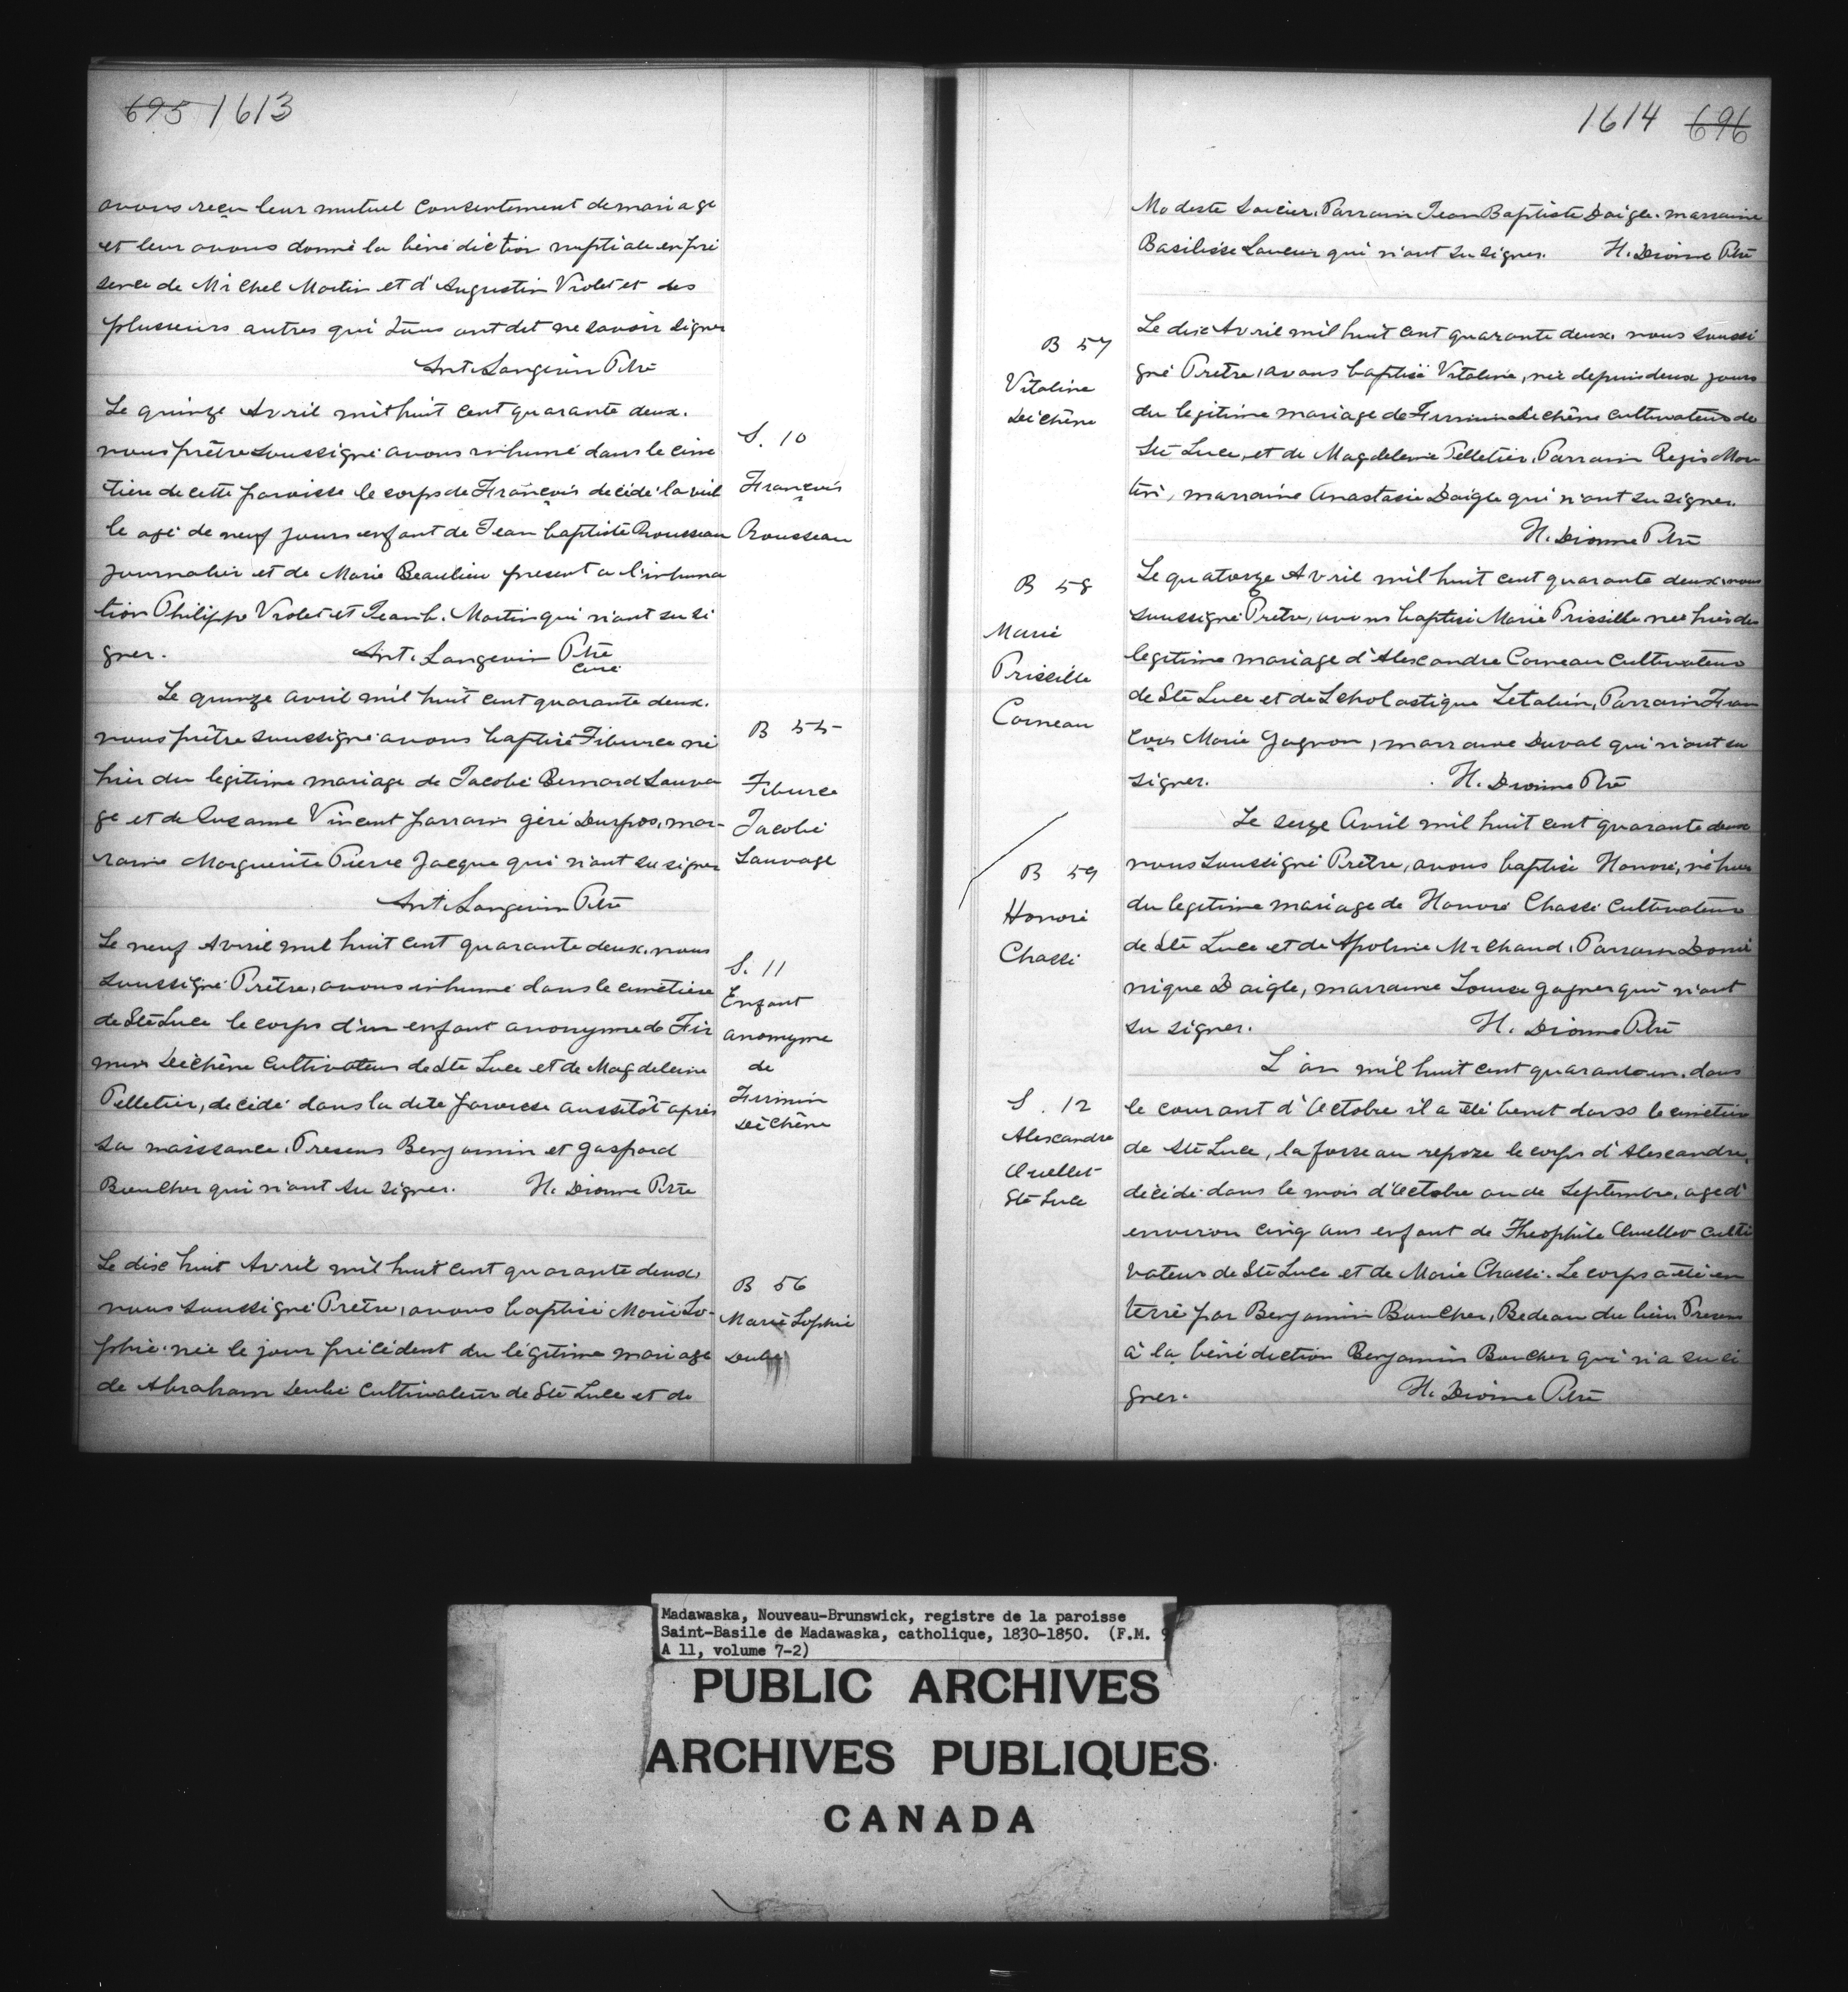 695 1613
avons reçu leur mutuel consentement de mariage
et leur avons donné la bénédiction nuptiale en pré
sence de Michel Martin et d'Augustin Violet et des
plusieurs autres qui tous ont dit ne savoir signer
Ant. Langevin Ptre
Le quinze Avril mil huit cent quarante deux.
nous prêtre soussigné avons inhumé dans le cime
tière de cette paroisse le corps de François décédé la veil
le agé de neuf jours enfant de Jean baptiste Rousseau
journalier et de Marie Beaulieu présent a l'inhuma
tion Philippe Violet et Jean b. Martin qui n'ont su si
gner. Ant. Langevin Ptre
Curé
S. 10
François
Rousseau
Le quinze avril mil huit cent quarante deux.
nous prêtre soussigné avons baptisé Tiburce né
hier du légitime mariage de Jacobi Bernard Sauva
ge et de Suzanne Vincent parrain géré Durpos, mar-
raine Marguerite Pierre Jacque qui n'ont su signer
Ant. Langevin Ptre
B 55
Tiburce
Jacobi
Sauvage
Le neuf Avril mil huit cent quarante deux, nous
soussigné Prêtre, avons inhumé dans le cimetière
de Ste Luce le corps d'un enfant anonyme de Fir
min Dechêne Cultivateur de Ste Luce et de Magdeleine
Pelletier, décédé dans la dite paroisse aussitôt après
sa naissance. Presens Benjamin et Gaspard
Boucher qui n'ont su signer. H. Dionne Ptre
S. 11
Enfant
anonyme
de
Firmin
Dechêne
Le dix huit Avril mil huit cent quarante deux,
nous soussigné Prêtre, avons baptisé Marie So-
phie née le jour précédent du légitime mariage
de Abraham Dubé Cultivateur de Ste Luce et de
B 56
Marie Sophie
Dubé
1614 696
Modeste Saucier. Parrain Jean Baptiste Daigle. marraine
Basilisse Saucier qui n'ont su signer. H. Dionne Ptre
Le dix Avril mil huit cent quarante deux, nous soussi
gné Prêtre, avons baptisé Vitaline, née depuis deux jours
du legitime mariage de Firmin Dechêne cultivateur de
Ste Luce, et de Magdeleine Pelletier, Parrain Regis Mar
tin, marraine Anastasie Daigle qui n'ont su signer.
H. Dionne Ptre
B 57
Vitaline
Dechêne
Le quatorze Avril mil huit cent quarante deux, nous
soussigné Prêtre, avons baptisé Marie Prissille née hier du
legitime mariage d'Alexandre Corneau Cultivateur
de Ste Luce et de Scholastique Letalien, Parrain Fran
çois Marie Gagnon, marraine Duval qui n'ont su
signer. H. Dionne Ptre
B 58
Marie
Priscille
Corneau
Le seize Avril mil huit cent quarante deux
nous soussigné Prêtre, avons baptisé Honoré, né hier
du legitime mariage de Honoré Chassé Cultivateur
de Ste Luce et de Apoline Michaud. Parrain Domi
nique Daigle, marraine Louise Gagner qui n'ont
su signer. H. Dionne Ptre
B 59
Honoré
Chassé
L'an mil huit cent quarante un, dans
le courant d'Octobre il a été benit dans le cimetière
de Ste Luce, la fosse au repose le corps d'Alexandre,
décédé dans le mois d'Octobre ou de Septembre, agé d'
environ cinq ans enfant de Theophile Ouellet culti
vateur de Ste Luce et de Marie Chassé. Le corps a été en
terré par Benjamin Boucher, Bedeau du lieu Presens
à la bénédiction Benjamin Boucher qui n'a su si
gner. H. Dionne Ptre
S. 12
Alexandre
Ouellet
Ste Luce
Madawaska, Nouveau-Brunswick, registre de la paroisse
Saint-Basile de Madawaska, catholique, 1830-1850. (F.M. 9
A 11, volume 7-2)
PUBLIC ARCHIVES
ARCHIVES PUBLIQUES
CANADA